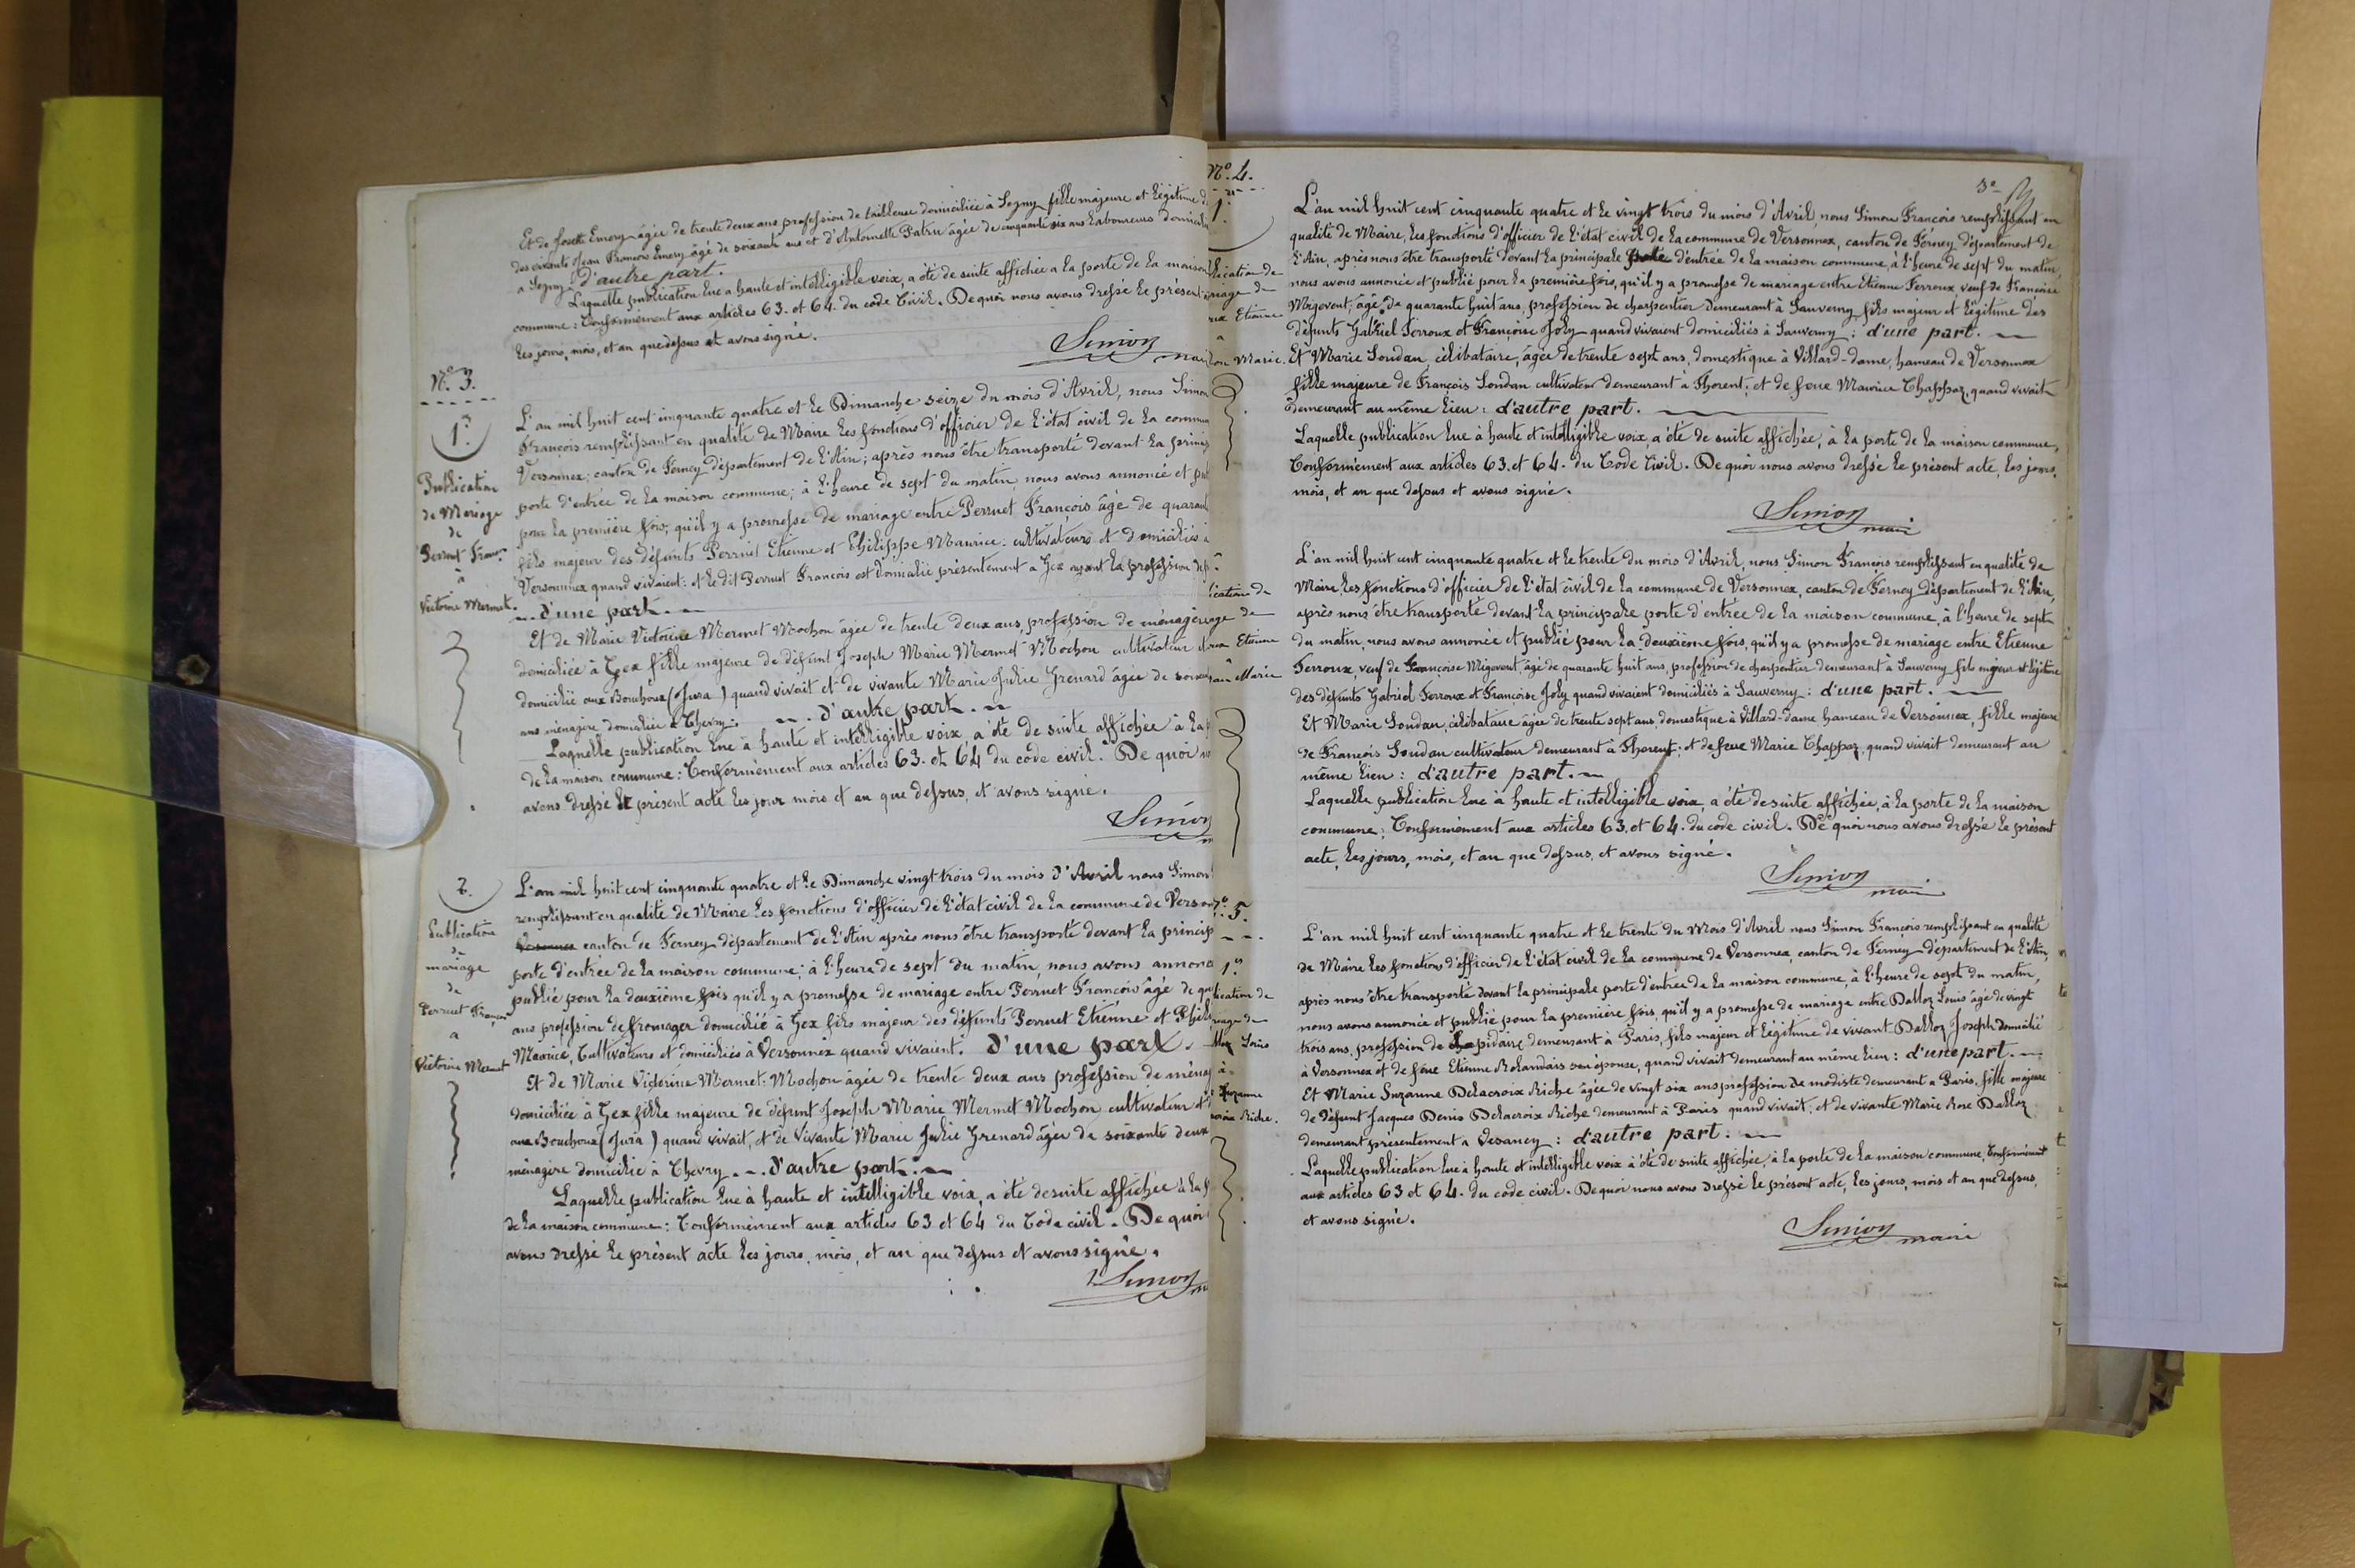 Et de Josette Emery âgée de trente deux ans profession de tailleuse domiciliée à Segny fille majeure et légitime d
des vivants Jean François Emery âgé de soixante ans et d'Antoinette Patru âgée de cinquante six ans Laboureurs domicili
a Segny: d'autre part.
Laquelle publication lue a haute et intelligible voix, a été de suite affichée a la porte de la maison
commune: Conformément aux articles 63. et 64. du code Civil. De quoi nous avons dressé le présent
les jours, mois, et an que dessus et avons signé.
Simon
mai
N.° 3.
1.°
Publication
de Mariage
de
Perrut Franç.
à
Victorine Mermet.
L'an mil huit cent cinquante quatre et le Dimanche seize du mois d'Avril, nous Simon
François remplissant en qualité de Maire les fonctions d'officier de l'état civil de la commu
Versonnex; canton de Ferney département de l'Ain; après nous être transporté devant la princi
porte d'entrée de la maison commune; à l'heure de sept du matin, nous avons annoncé et pu
pour la première fois, qu'il y a promesse de mariage entre Perrut François âgé de quaran
fils majeur des défunts Perrut Etienne et Philippe Maurice: cultivateurs et domiciliés à
Versonnex quand vivaient: et le dit Perrut François est domicilié présentement a Gex ayant la profession de
d'une part.
Et de Marie Victorine Mermet Mochon âgée de trente deux ans, profession de ménagè
domiciliée à Gex fille majeure de défunt Joseph Marie Mermet Mochon cultivateur d
domicilié aux Bouchoux (Jura) quand vivait et de vivante Marie Julie Grenard âgée de soixan
ans ménagère domiciliée à Chevry. d'autre part.
Laquelle publication lue à haute et intelligible voix, a été de suite affichée à la p
de la maison commune: Conformément aux articles 63. et 64 du code civil. De quoi no
avons dressé le présent acte les jour mois et an que dessus, et avons signé.
Simon
2.
Publication
de
mariage
de
Perrut Franç
a
Victorine Mermet
L'an mil huit cent cinquante quatre et le Dimanche vingt trois du mois d'Avril nous Simon
remplissant en qualité de Maire les fonctions d'officier de l'état civil de la commune de Verson
canton de Ferney département de l'Ain après nous être transporté devant la princip
porte d'entrée de la maison commune; à l'heure de sept du matin, nous avons annonc
publié pour la deuxième fois qu'il y a promesse de mariage entre Perrut François âgé de qu
ans profession de fromager domicilié à Gex fils majeur des défunts Perrut Etienne et Phili
Maurice, Cultivateurs et domiciliés à Versonnex quand vivaient. d'une part.
Et de Marie Victorine Mermet Mochon âgée de trente deux ans profession de ménag
domiciliée à Gex fille majeure de défunt Joseph Marie Mermet Mochon cultivateur d
aux Bouchoux (Jura) quand vivait, et de vivante Marie Julie Grenard âgée de soixante deux
ménagère domicilié à Chevry. d'autre part.
Laquelle publication lue à haute et intelligible voix, a été de suite affichée à la p
de la maison commune: Conformément aux articles 63 et 64 du Code civil. De quoi
avons dressé le présent acte les jours, mois, et an que dessus et avons signé.
Simon
N.° 4.
1.°
lication de
riage de
roux Etienne
à
dan Marie.
3e
L'an mil huit cent cinquante quatre et le vingt trois du mois d'Avril, nous Simon François remplissant en
qualité de Maire, les fonctions d'officier de l'état civil de la commune de Versonnex, canton de Ferney département de
l'Ain, après nous être transporté devant la principale porte d'entrée de la maison commune, à l'heure de sept du matin,
nous avons annoncé et publié pour la première fois, qu'il y a promesse de mariage entre Etienne Ferroux veuf de Françoise
Migovent, âgé de quarante huit ans, profession de charpentier demeurant à Sauverny fils majeur et légitime des
défunts Gabriel Ferroux et Françoise Joly quand vivaient domiciliés à Sauverny: d'une part.
Et Marie Soudan, célibataire, âgée de trente sept ans, domestique à Villard-dame, hameau de Versonnex
fille majeure de François Soudan cultivateur demeurant à Thorent; et de feue Maurice Chappaz, quand vivait
demeurant au même lieu: d'autre part.
Laquelle publication lue à haute et intelligible voix, a été de suite affichée, à la porte de la maison commune,
Conformément aux articles 63. et 64. du Code Civil. De quoi nous avons dressé le présent acte, les jours,
mois, et an que dessus et avons signé.
Simon
mair
lication de
iage de
roux Etienne
Marie
L'an mil huit cent cinquante quatre et le trente du mois d'Avril, nous Simon François remplissant en qualité de
Maire les fonctions d'officier de l'état civil de la commune de Versonnex, canton de Ferney département de l'Ain,
après nous être transporté devant la principale porte d'entrée de la maison commune, à l'heure de sept
du matin, nous avons annoncé et publié pour la deuxième fois, qu'il y a promesse de mariage entre Etienne
Ferroux, veuf de Françoise Migovent, âgé de quarante huit ans, profession de charpentier demeurant à Sauverny fils majeur et légitime
des défunts Gabriel Ferroux et Françoise Joly quand vivaient domiciliés à Sauverny: d'une part.
Et Marie Soudan, célibataire âgée de trente sept ans, domestique à Villard-dame hameau de Versonnex, fille majeure
de François Soudan cultivateur demeurant à Thorent; et de feue Marie Chappaz, quand vivait demeurant au
même lieu: d'autre part.
Laquelle publication lue à haute et intelligible voix, a été de suite affichée, à la porte de la maison
commune; Conformément aux articles 63. et 64. du code civil. De quoi nous avons dressé le présent
acte, les jours, mois, et an que dessus, et avons signé.
Simon
mair
N.° 5.
1.er
lication de
riage de
lloz Louis
à
Suzanne
roix Riche.
L'an mil huit cent cinquante quatre et le trente du Mois d'Avril nous Simon François remplissant en qualité
de Maire les fonctions d'officier de l'état civil de la commune de Versonnex, canton de Ferney département de l'Ain,
après nous être transporté devant la principale porte d'entrée de la maison commune, à l'heure de sept du matin,
nous avons annoncé et publié pour la première fois, qu'il y a promesse de mariage entre Dalloz Louis âgé de vingt
trois ans, profession de lapidaire demeurant à Paris, fils majeur et légitime de vivant Dalloz Joseph domicilié
à Versonnex et de feue Etienne Rolandais son épouse, quand vivait demeurant au même lieu: d'une part.
Et Marie Suzanne Delacroix Riche âgée de vingt six ans profession de modiste demeurant a Paris, fille majeure
de défunt Jacques Denis Delacroix Riche demeurant à Paris quand vivait; et de vivante Marie Rose Dalloz
demeurant présentement a Vesancy: d'autre part.
Laquelle publication lue à haute et intelligible voix à été de suite affichée, à la porte de la maison commune, Conformément
aux articles 63 et 64. du code civil. De quoi nous avons dressé le présent acte, les jours, mois et an que dessus,
et avons signé.
Simon
maire